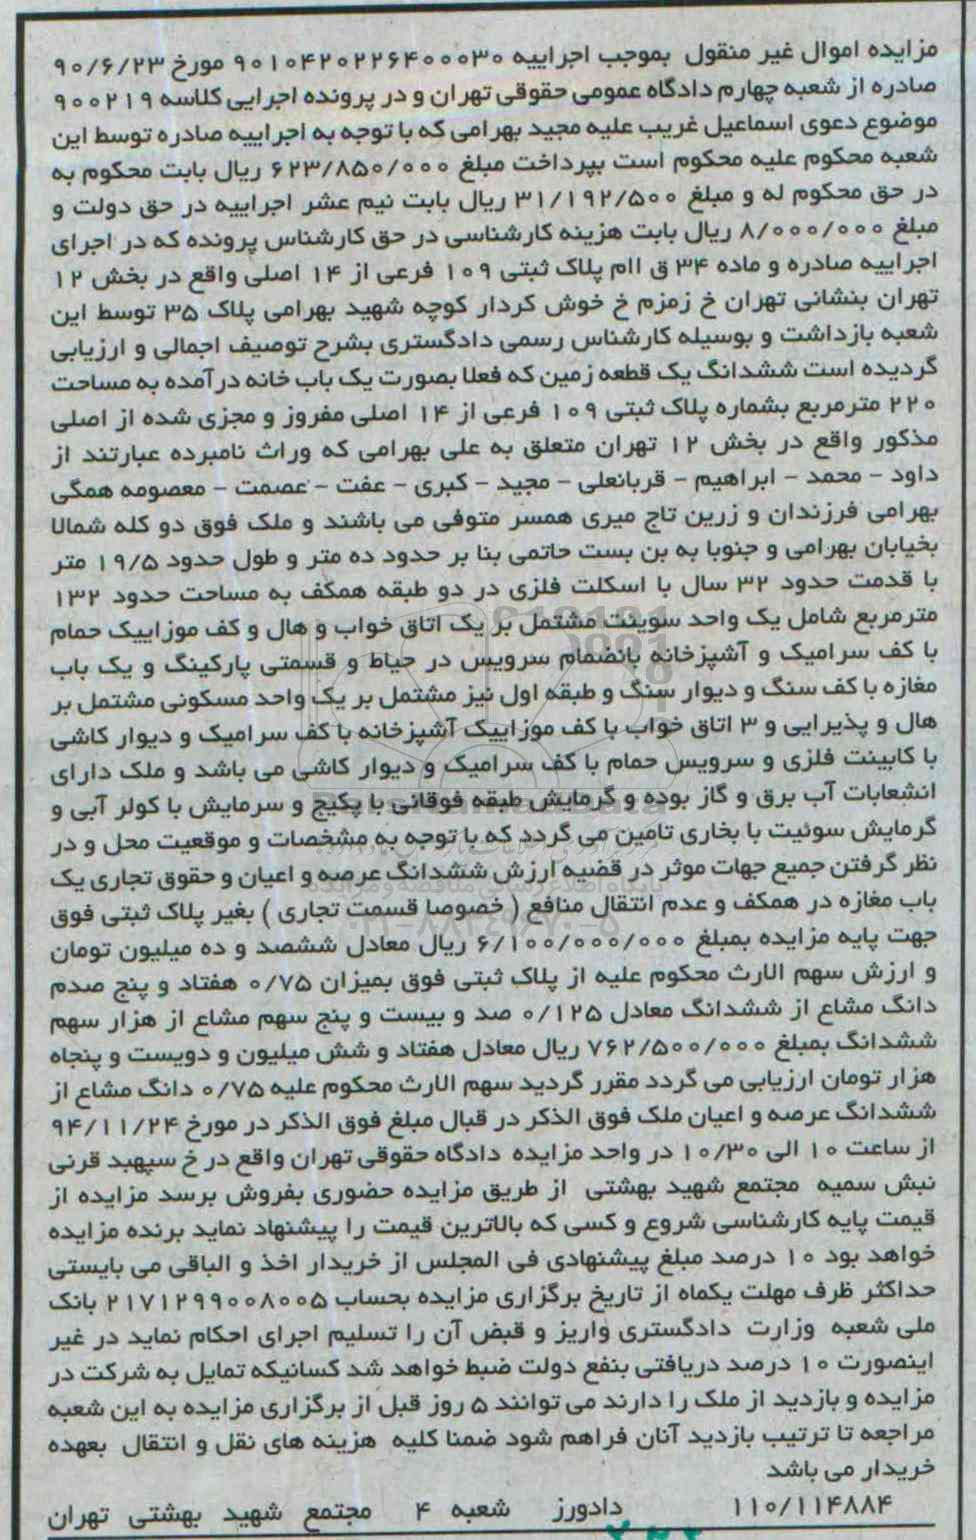 مزایده اموال غیر منقول بموجب اجراییه ۹۰۱۰۴۲۰۲۲۶۴۰۰۰۳۰ مورخ ۹۰/۶/۲۳
صادره از شعبه چهارم دادگاه عمومی حقوقی تهران و در پرونده اجرایی کلاسه ۹۰۰۲۱۹
موضوع دعوی اسماعیل غریب علیه مجید بهرامی که با توجه به اجراییه صادره توسط این
شعبه محکوم علیه محکوم است بپرداخت مبلغ ۶۲۳/۸۵۰/۰۰۰ ریال بابت محکوم به
در حق محکوم له و مبلغ ۳۱/۱۹۲/۵۰۰ ریال بابت نیم عشر اجراییه در حق دولت و
مبلغ ۸/۰۰۰/۰۰۰ ریال بابت هزینه کارشناسی در حق کارشناس پرونده که در اجرای
اجراییه صادره و ماده ۳۴ ق اام پلاک ثبتی ۱۰۹ فرعی از ۱۴ اصلی واقع در بخش ۱۲
تهران بنشانی تهران خ زمزم خ خوش کردار کوچه شهید بهرامی پلاک ۳۵ توسط این
شعبه بازداشت و بوسیله کارشناس رسمی دادگستری بشرح توصیف اجمالی و ارزیابی
گردیده است ششدانگ یک قطعه زمین که فعلا بصورت یک باب خانه درآمده به مساحت
۲۲۰ مترمربع بشماره پلاک ثبتی ۱۰۹ فرعی از ۱۴ اصلی مفروز و مجزی شده از اصلی
مذکور واقع در بخش ۱۲ تهران متعلق به علی بهرامی که وراث نامبرده عبارتند از
داود - محمد - ابراهیم - قربانعلی - مجید - کبری - عفت - عصمت - معصومه همگی
بهرامی فرزندان و زرین تاج میری همسر متوفی می باشند و ملک فوق دو کله شمالا
بخیابان بهرامی و جنوبا به بن بست حاتمی بنا بر حدود ده متر و طول حدود ۱۹/۵ متر
با قدمت حدود ۳۲ سال با اسکلت فلزی در دو طبقه همکف به مساحت حدود ۱۳۲
مترمربع شامل یک واحد سوینت مشتمل بر یک اتاق خواب و هال و کف موزاییک حمام
با کف سرامیک و آشپزخانه بانضمام سرویس در حیاط و قسمتی پارکینگ و یک باب
مغازه با کف سنگ و دیوار سنگ و طبقه اول نیز مشتمل بر یک واحد مسکونی مشتمل بر
هال و پذیرایی و ۳ اتاق خواب با کف موزاییک آشپزخانه با کف سرامیک و دیوار کاشی
با کابینت فلزی و سرویس حمام با کف سرامیک و دیوار کاشی می باشد و ملک دارای
انشعابات آب برق و گاز بوده و گرمایش طبقه فوقانی با پکیج و سرمایش با کولر آبی و
گرمایش سوئیت با بخاری تامین می گردد که با توجه به مشخصات و موقعیت محل و در
نظر گرفتن جمیع جهات موثر در قضیه ارزش ششدانگ عرصه و اعیان و حقوق تجاری یک
باب مغازه در همکف و عدم انتقال منافع ( خصوصا قسمت تجاری ) بغیر پلاک ثبتی فوق
جهت پایه مزایده بمبلغ ۶/۱۰۰/۰۰۰/۰۰۰ ریال معادل ششصد و ده میلیون تومان
و ارزش سهم الارث محکوم علیه از پلاک ثبتی فوق بمیزان ۰/۷۵ هفتاد و پنج صدم
دانگ مشاع از ششدانگ معادل ۰/۱۲۵ صد و بیست و پنج سهم مشاع از هزار سهم
ششدانگ بمبلغ ۷۶۲/۵۰۰/۰۰۰ ریال معادل هفتاد و شش میلیون و دویست و پنجاه
هزار تومان ارزیابی می گردد مقرر گردید سهم الارث محکوم علیه ۰/۷۵ دانگ مشاع از
ششدانگ عرصه و اعیان ملک فوق الذکر در قبال مبلغ فوق الذکر در مورخ ۹۴/۱۱/۲۴
از ساعت ۱۰ الی ۱۰/۳۰ در واحد مزایده دادگاه حقوقی تهران واقع در خ سپهبد قرنی
نبش سمیه مجتمع شهید بهشتی از طریق مزایده حضوری بفروش برسد مزایده از
قیمت پایه کارشناسی شروع و کسی که بالاترین قیمت را پیشنهاد نماید برنده مزایده
خواهد بود ۱۰ درصد مبلغ پیشنهادی فی المجلس از خریدار اخذ و الباقی می بایستی
حداکثر ظرف مهلت یکماه از تاریخ برگزاری مزایده بحساب ۲۱۷۱۲۹۹۰۰۸۰۰۵ بانک
ملی شعبه وزارت دادگستری واریز و قبض آن را تسلیم اجرای احکام نماید در غیر
اینصورت ۱۰ درصد دریافتی بنفع دولت ضبط خواهد شد کسانیکه تمایل به شرکت در
مزایده و بازدید از ملک را دارند می توانند ۵ روز قبل از برگزاری مزایده به این شعبه
مراجعه تا ترتیب بازدید آنان فراهم شود ضمنا کلیه هزینه های نقل و انتقال بعهده
خریدار می باشد
۱۱۰/۱۱۴۸۸۴ دادورز شعبه ۴ مجتمع شهید بهشتی تهران